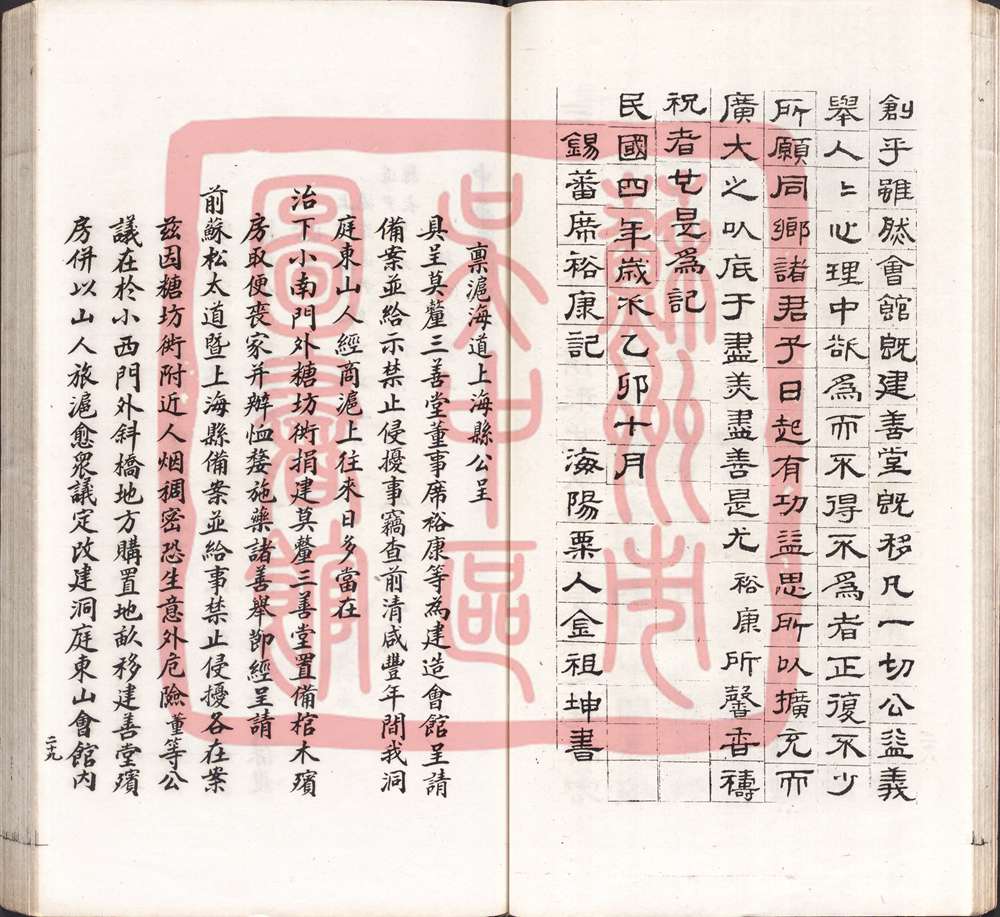 創乎雖然會館既建善堂既移凡一切公益義
舉人〻心理中欲為而不得不為者正復不少
所願同鄉諸君子日起有功益思所以擴充而
廣大之以底于盡美盡善是尤裕康所馨香禱
祝者也是為記
民國四年歲次乙卯十月
錫蕃席裕康記 海陽粟人金祖坤書
稟滬海道上海縣公呈
具呈莫釐三善堂董事席裕康等為建造會館呈請
備案並給示禁止侵擾事竊查前清咸豐年間我洞
庭東山人經商滬上往來日多當在
治下小南門外糖坊衖捐建莫釐三善堂置備棺木殯
房取便喪家并辦恤嫠施藥諸善舉節經呈請
前蘇松太道暨上海縣備案並給事禁止侵擾各在案
茲因糖坊衖附近人烟稠密恐生意外危險董等公
議在於小西門外斜橋地方購置地畝移建善堂殯
房併以山人旅滬愈眾議定改建洞庭東山會館內
二九
蘇州市
吳中區
圖書館